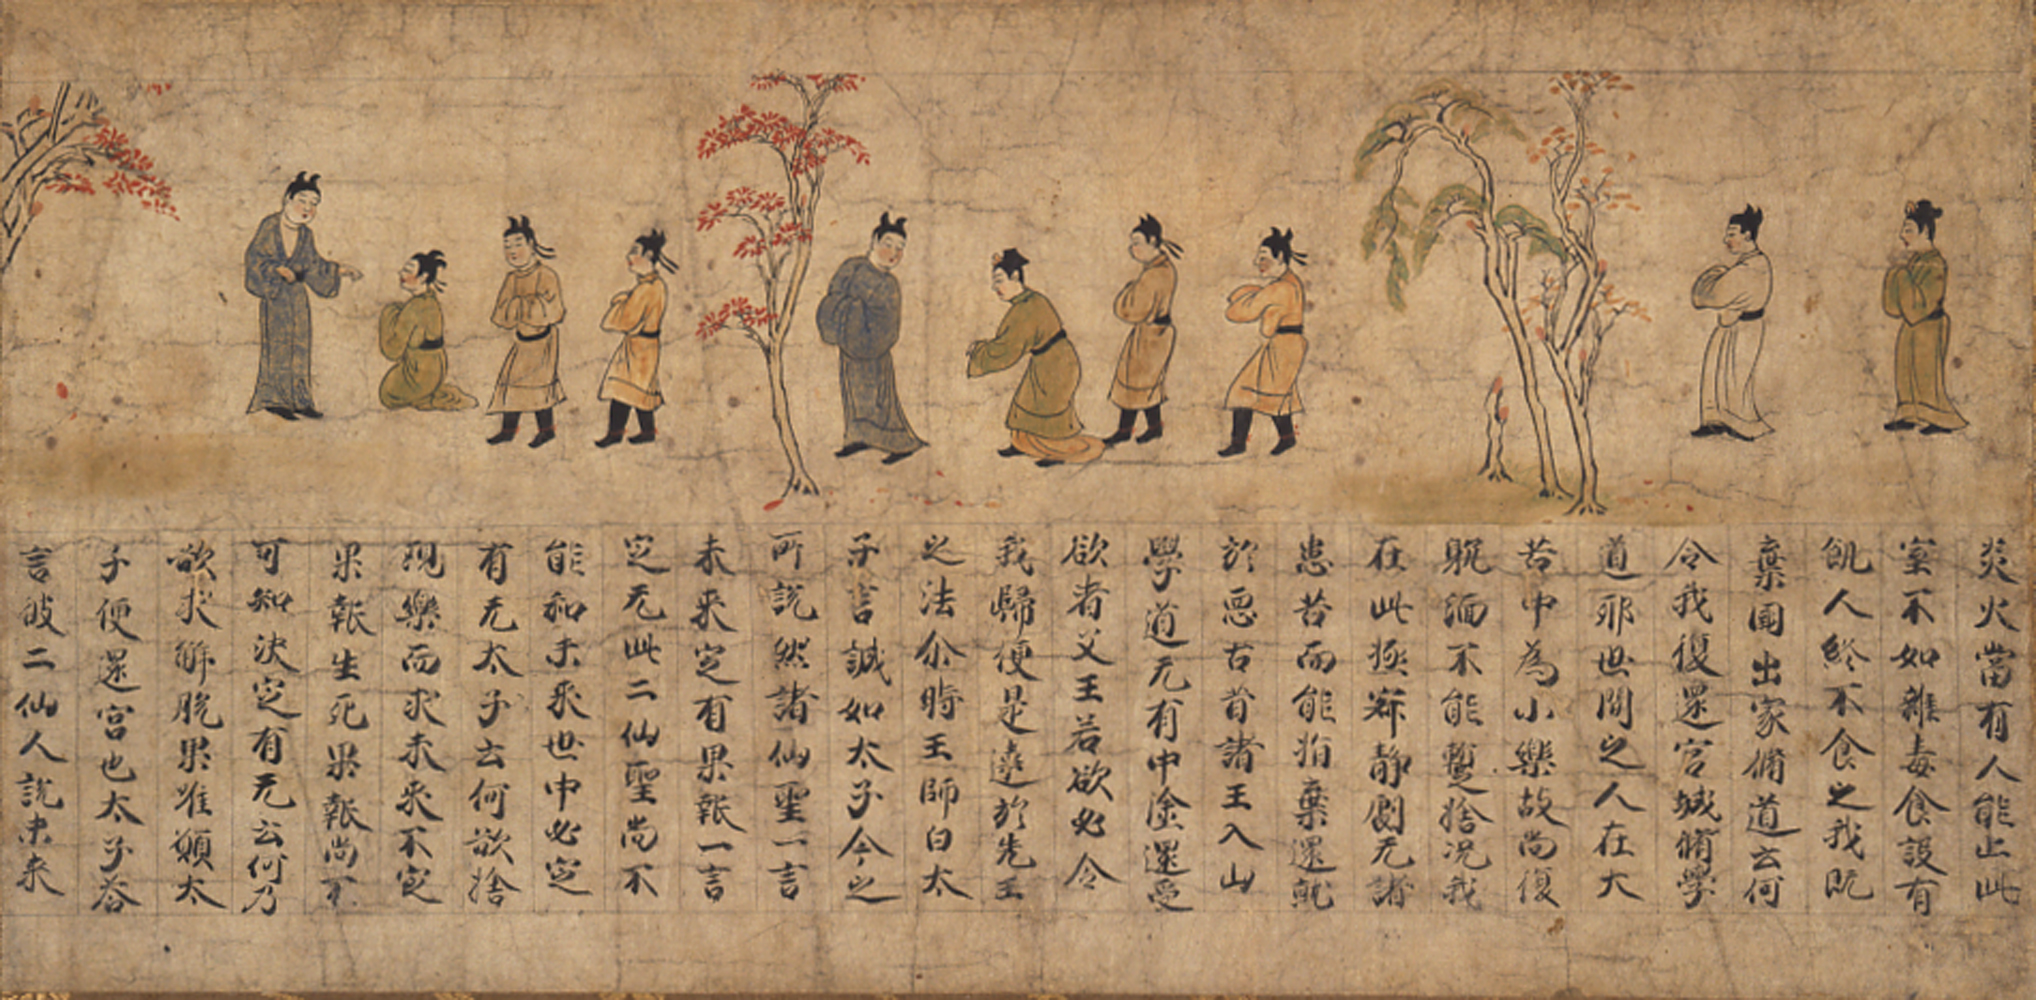 炎火當有人能止此
室不如雜毒食設有
飢人終不食之我既
棄國出家脩道云何
令我復還宮城脩學
道耶世間之人在大
苦中為小樂故尚復
躭湎不能暫捨況我
在此極寂靜劇无諸
患苦而能捐棄還就
於惡古昔諸王入山
學道无有中塗還受
欲者父王若欲必令
我歸便是違於先王
之法尒時王師白太
子言誠如太子今之
所說然諸仙聖一言
未來定有果報一言
定无此二仙聖尚不
能知未來世中必定
有无太子云何欲捨
現樂而求未來不定
果報生死果報尚不
可知決定有无云何乃
欲求解脫果唯願太
子便還宮也太子荅
言彼二仙人說未来